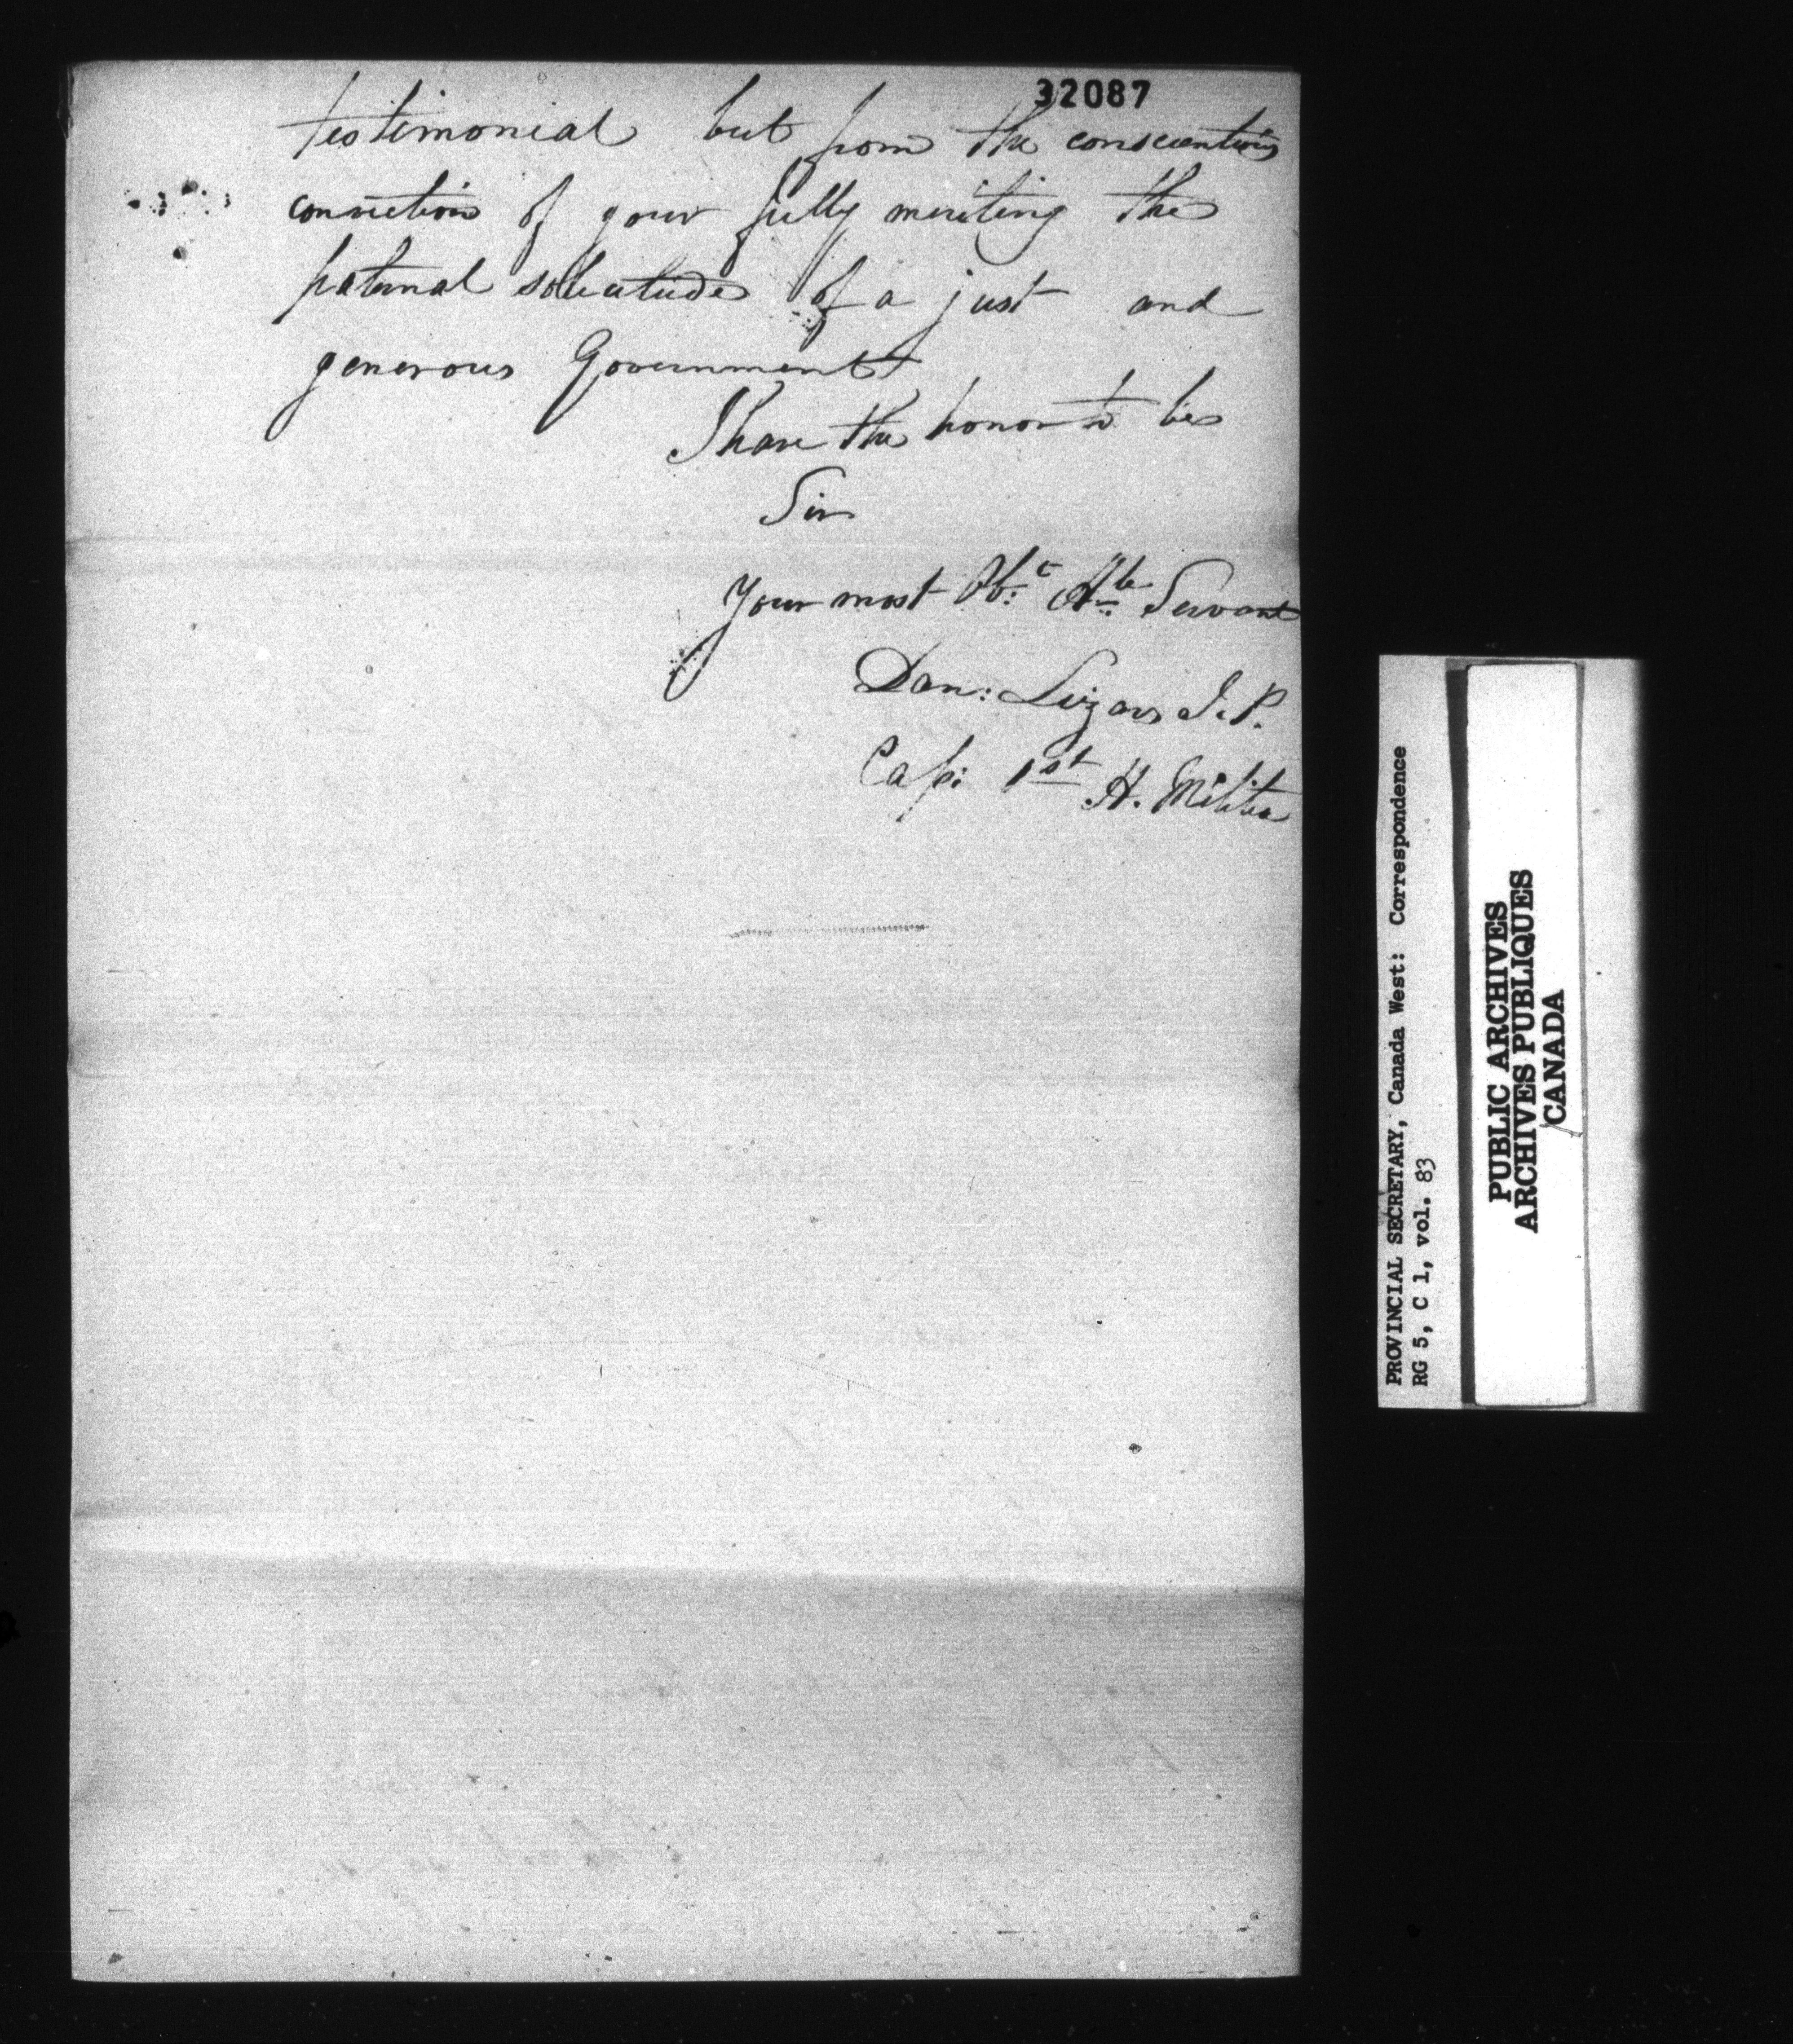 32087
testimonial but from the conscientious
conviction of your fully meriting the
paternal solicitude of a just and
generous Government
I have the honor to be
Sir
Your most Obt. Hble. Servant
Dan: Lizars J.P.
Cap: 1st H. Militia
PROVINCIAL SECRETARY, Canada West: Correspondence
RG 5, C 1, vol. 83
PUBLIC ARCHIVES
ARCHIVES PUBLIQUES
CANADA